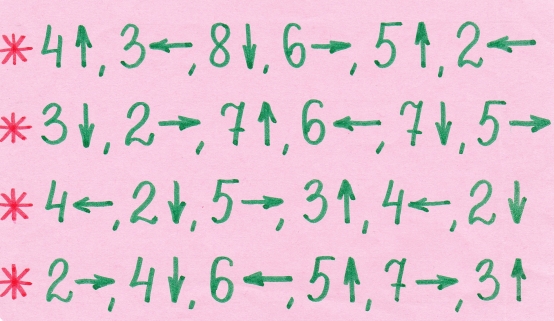 * 4↑, 3←, 8↓, 6→, 5↑, 2←
* 3↓, 2→, 7↑, 6←, 7↓, 5→
* 4←, 2↓, 5→, 3↑, 4←, 2↓
* 2→, 4↓, 6←, 5↑, 7→, 3↑